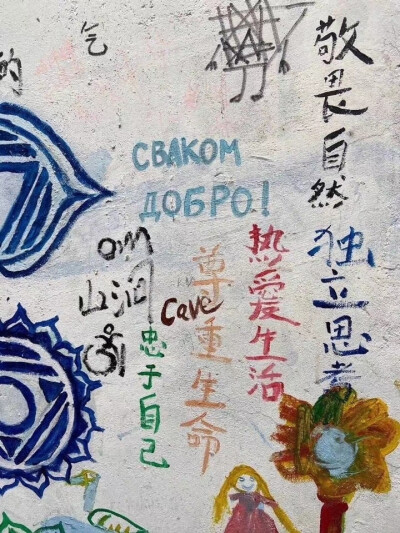 气
的
敬畏自然
独立思考
СВАКОМ
ДОБРО!
热爱生活
尊重生命
om
山涧
cave
忠于自己